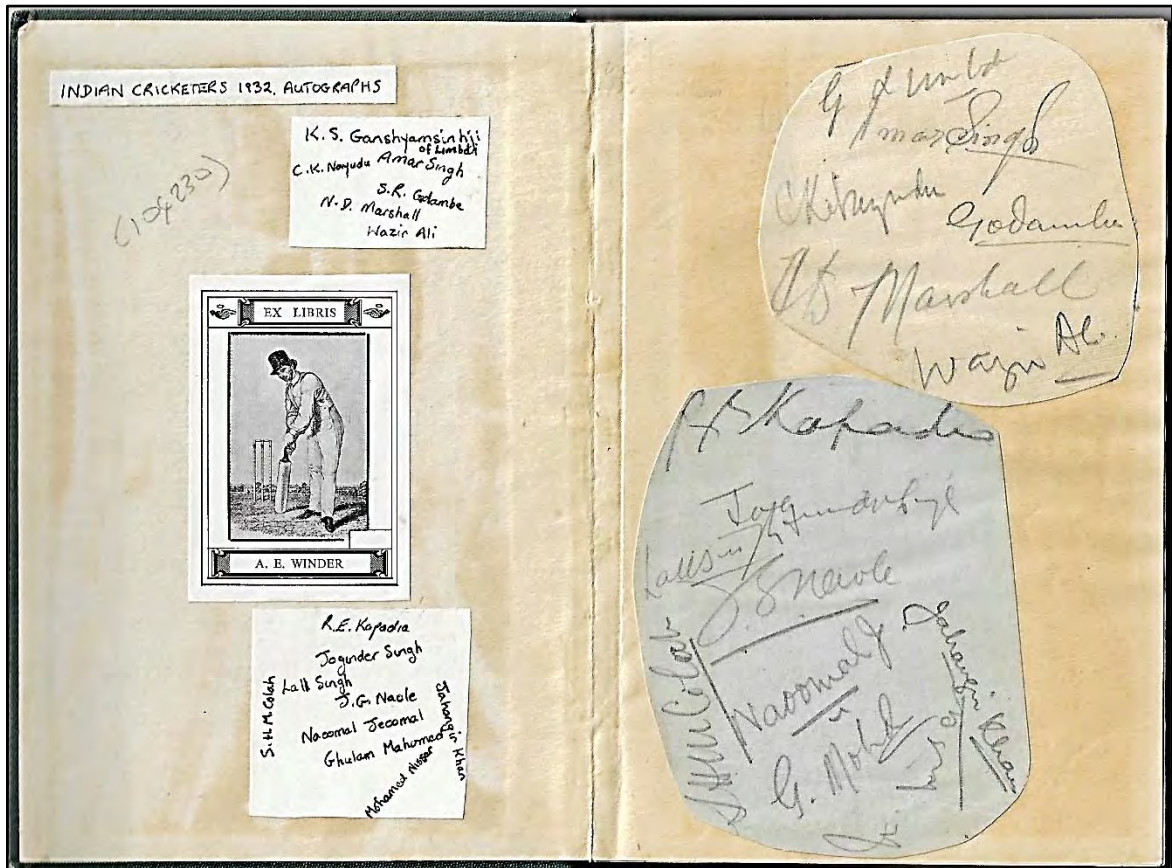 INDIAN CRICKETERS 1932. AUTOGRAPHS
K. S. Ganshyamsinhji
of Limbdi
C. K. Nayudu Amar Singh
S. R. Godambe
N. D. Marshall
Wazir Ali
(104230)
EX LIBRIS
A. E. WINDER
R. E. Kapadia
Joginder Singh
Lall Singh
J. G. Naole
Naoomal Jeoomal
Ghulam Mahomed
S. H. M. Colah
Mohamed Nissar
Jahangir Khan
Amar Singh
C K Nayudu
Godambe
Marshall
Wazir Ali.
Kapadia
Lall Singh
J. G. Navle
Naoomal J
G. Mohd
S H M Colah
Jahangir Khan